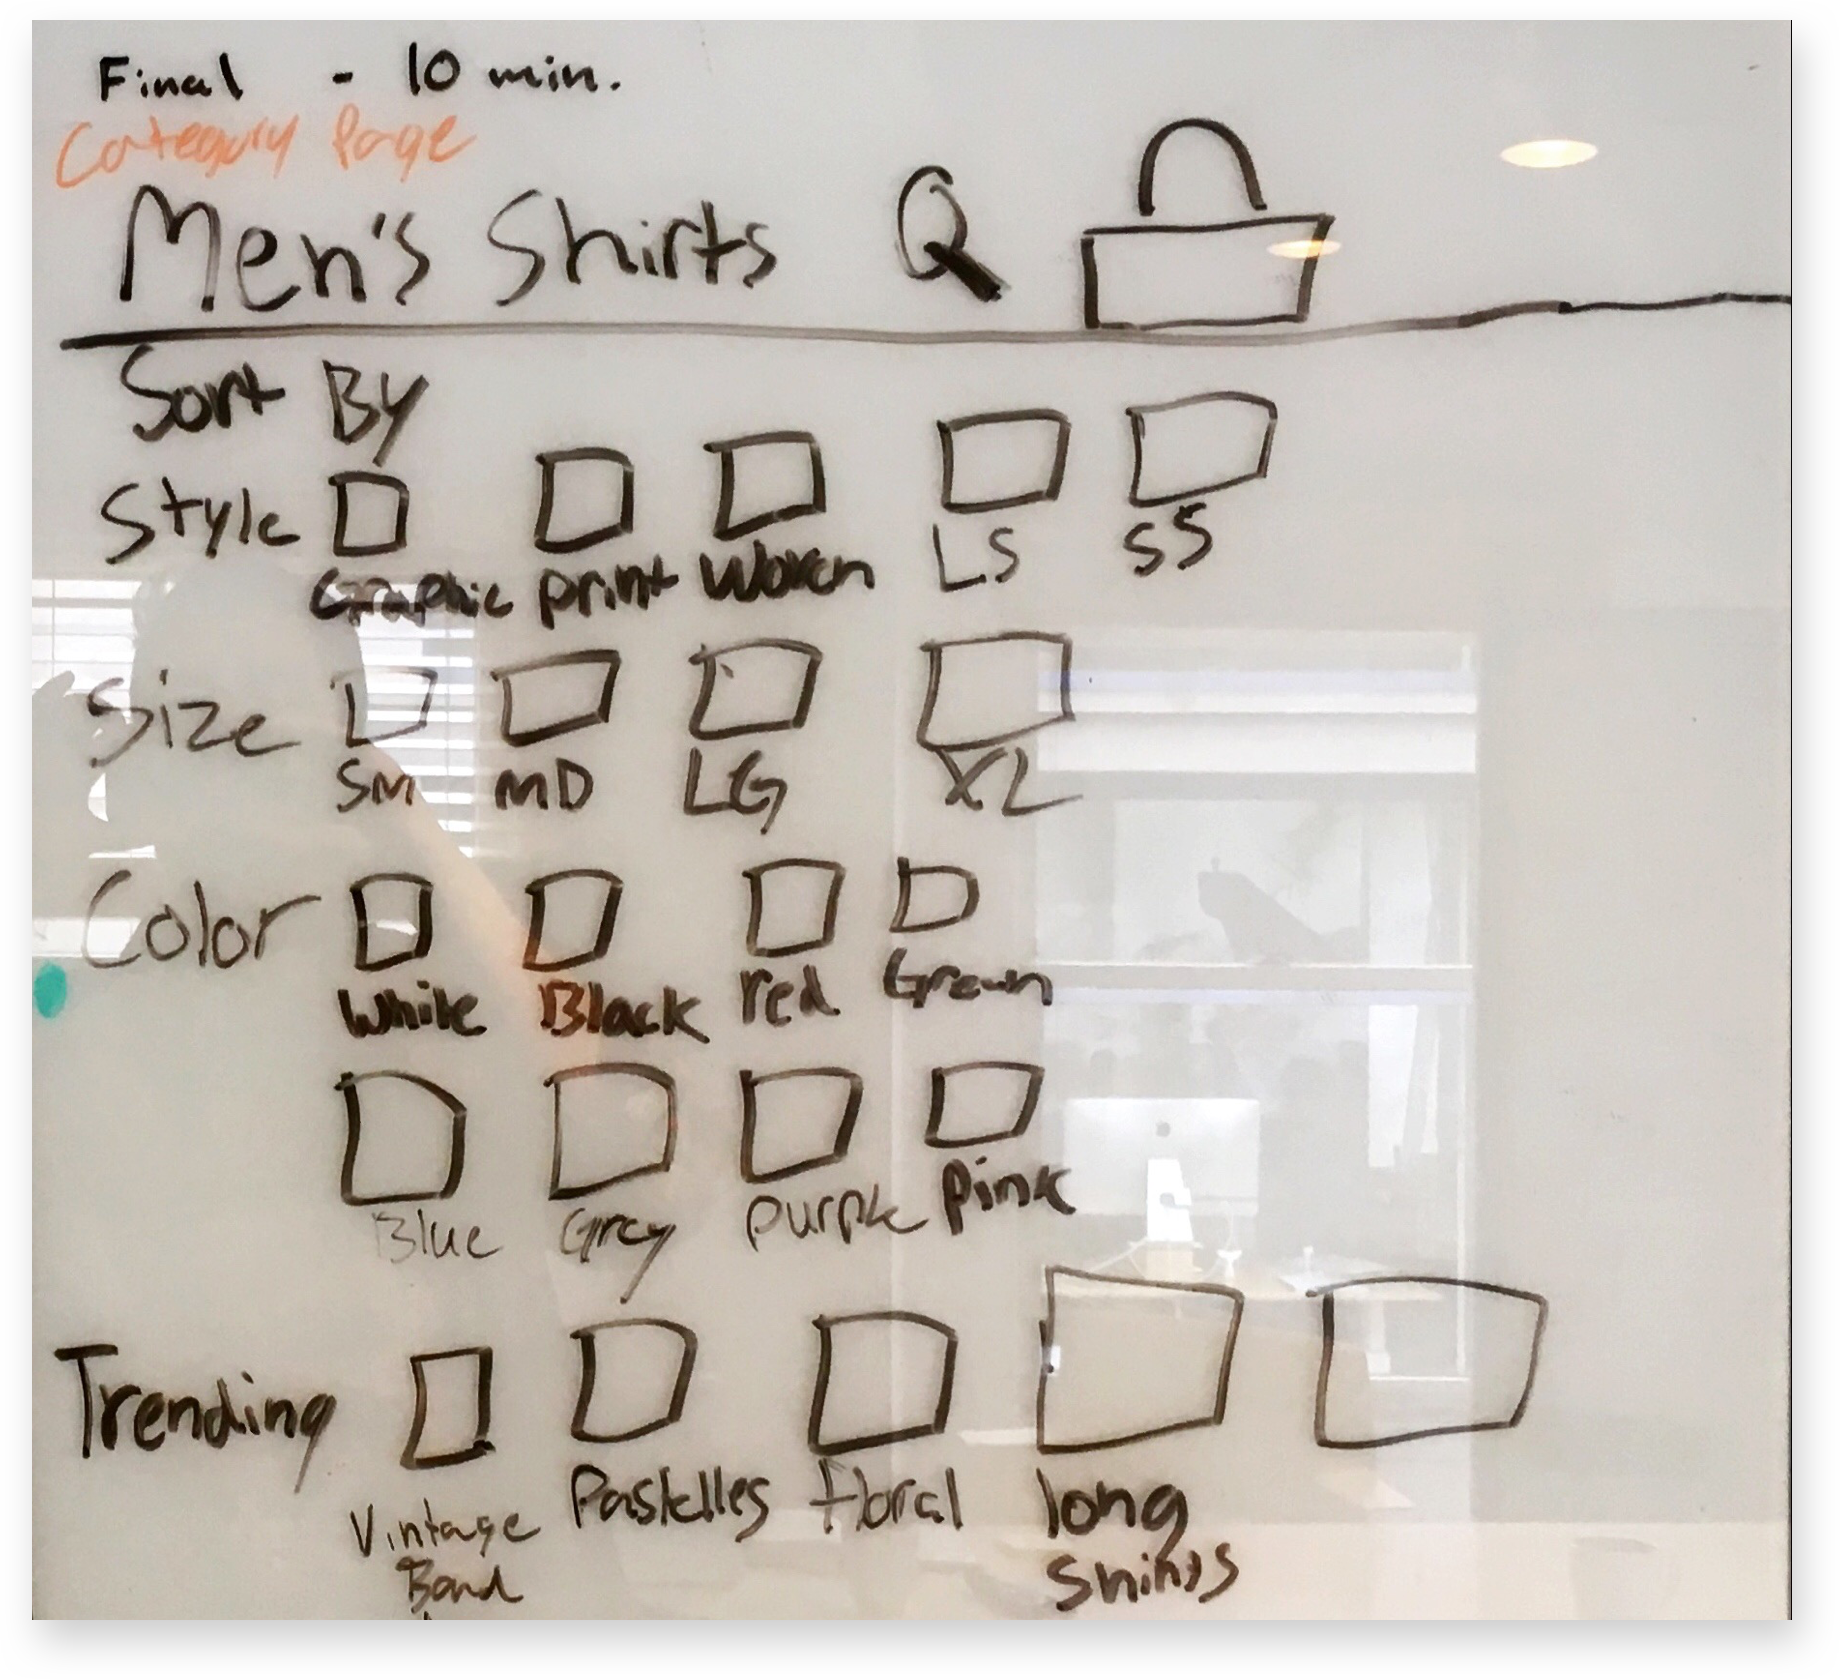 Final - 10 min.
Category Page
Men's Shirts
Sort By
Style
Graphic print Woven LS SS
Size
SM MD LG XL
Color
White Black red Green
Blue Grey purple pink
Trending
Vintage Band Pastelles floral long Shirts